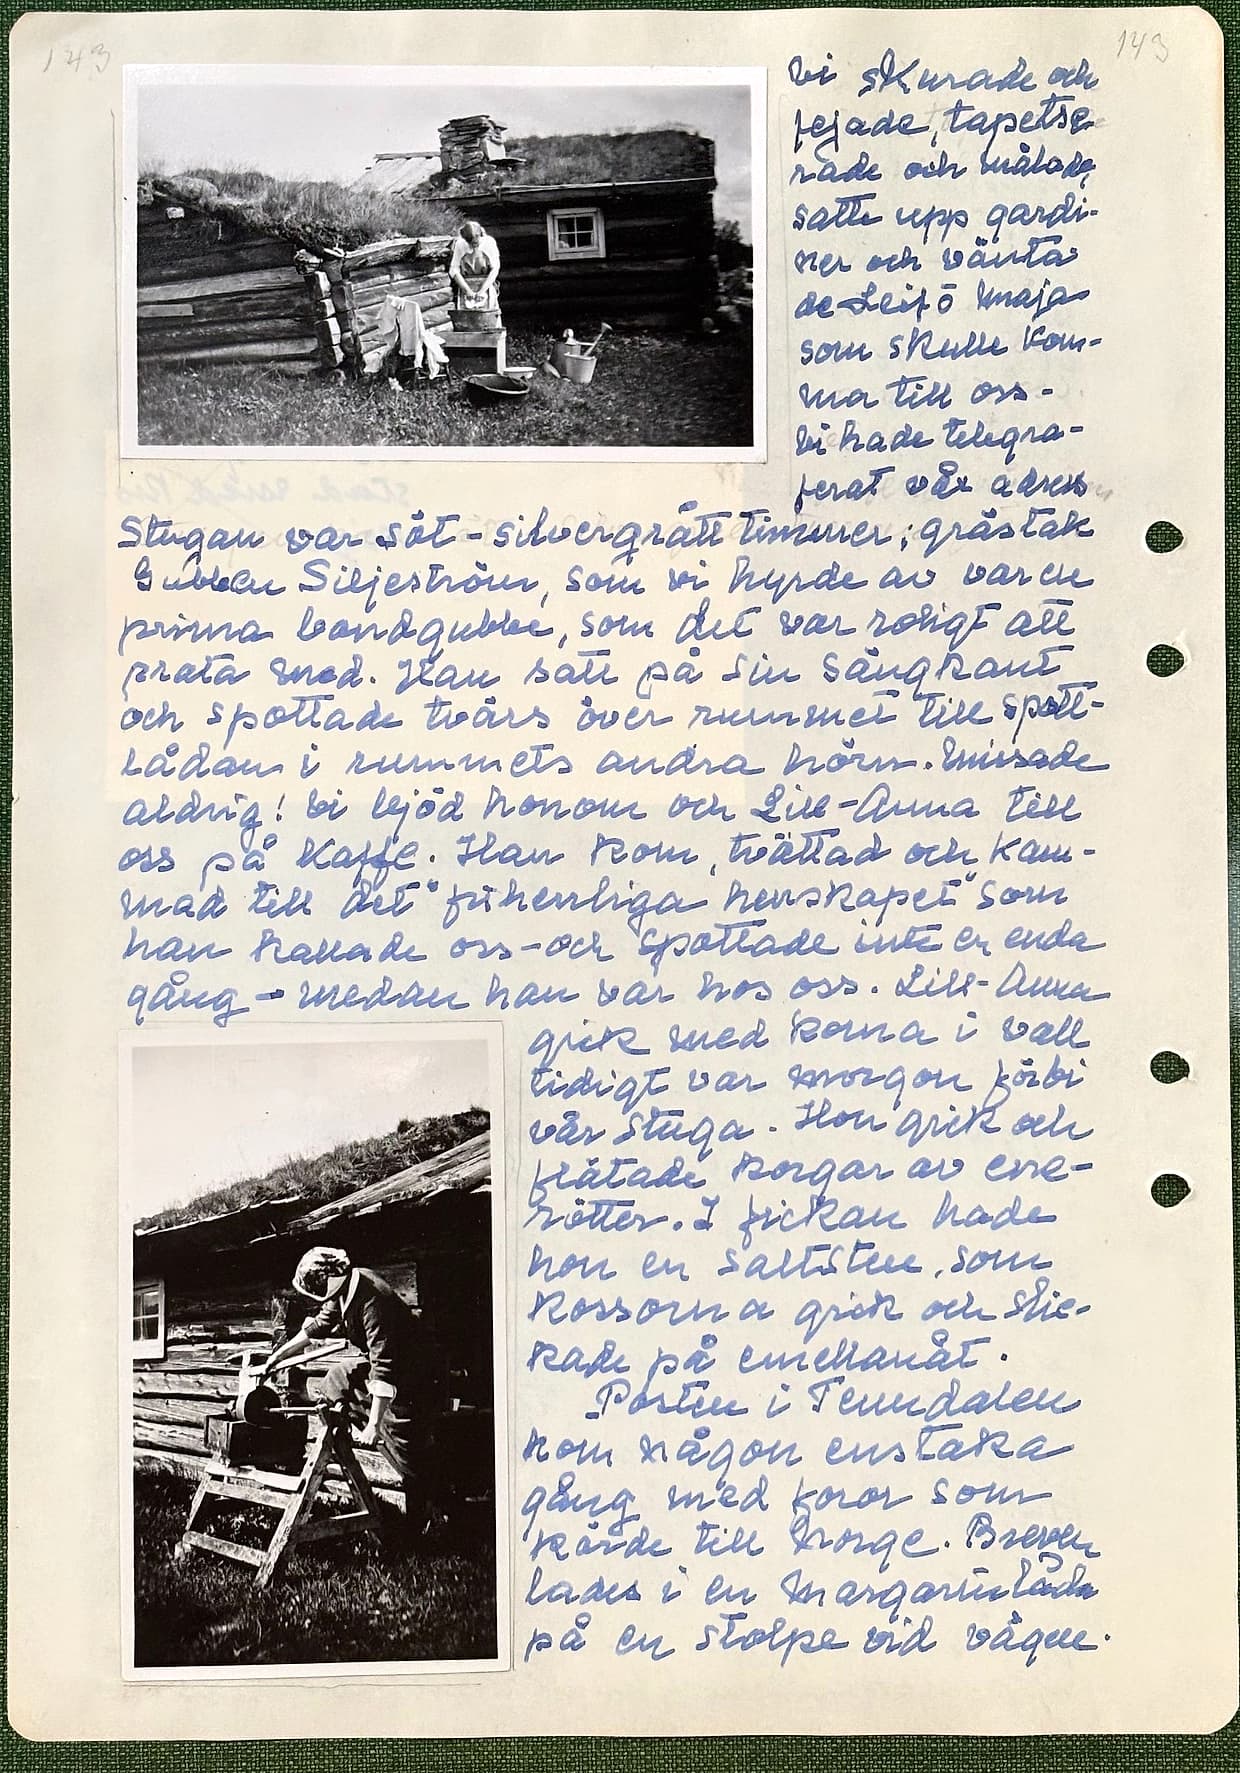 143
143
Vi skurade och
fejade, tapetse-
rade och målade,
satte upp gardi-
ner och vänta
de Leif o Maja
som skulle kom-
ma till oss-
Vi hade telegra-
ferat vår adress
Stugan var söt - silvergrått timmer; grästak
Gubben Siljeström, som vi hyrde av var en
prima bondgubbe, som det var roligt att
prata med. Han satt på sin sängkant
och spottade tvärs över rummet till spott-
lådan i rummets andra hörn. Missade
aldrig! Vi bjöd honom och Lill-Anna till
oss på kaffe. Han kom, tvättad och kam-
mad till det "friherrliga herrskapet" som
han kallade oss - och spottade inte en enda
gång - medan han var hos oss. Lill-Anna
gick med korna i vall
tidigt var morgon förbi
vår stuga. Hon gick och
flätade korgar av ene-
rötter. I fickan hade
hon en saltsten, som
kossorna gick och slic-
kade på emellanåt.
Posten i Tenndalen
kom någon enstaka
gång med foror som
körde till Norge. Breven
lades i en margarinlåda
på en stolpe vid vägen.